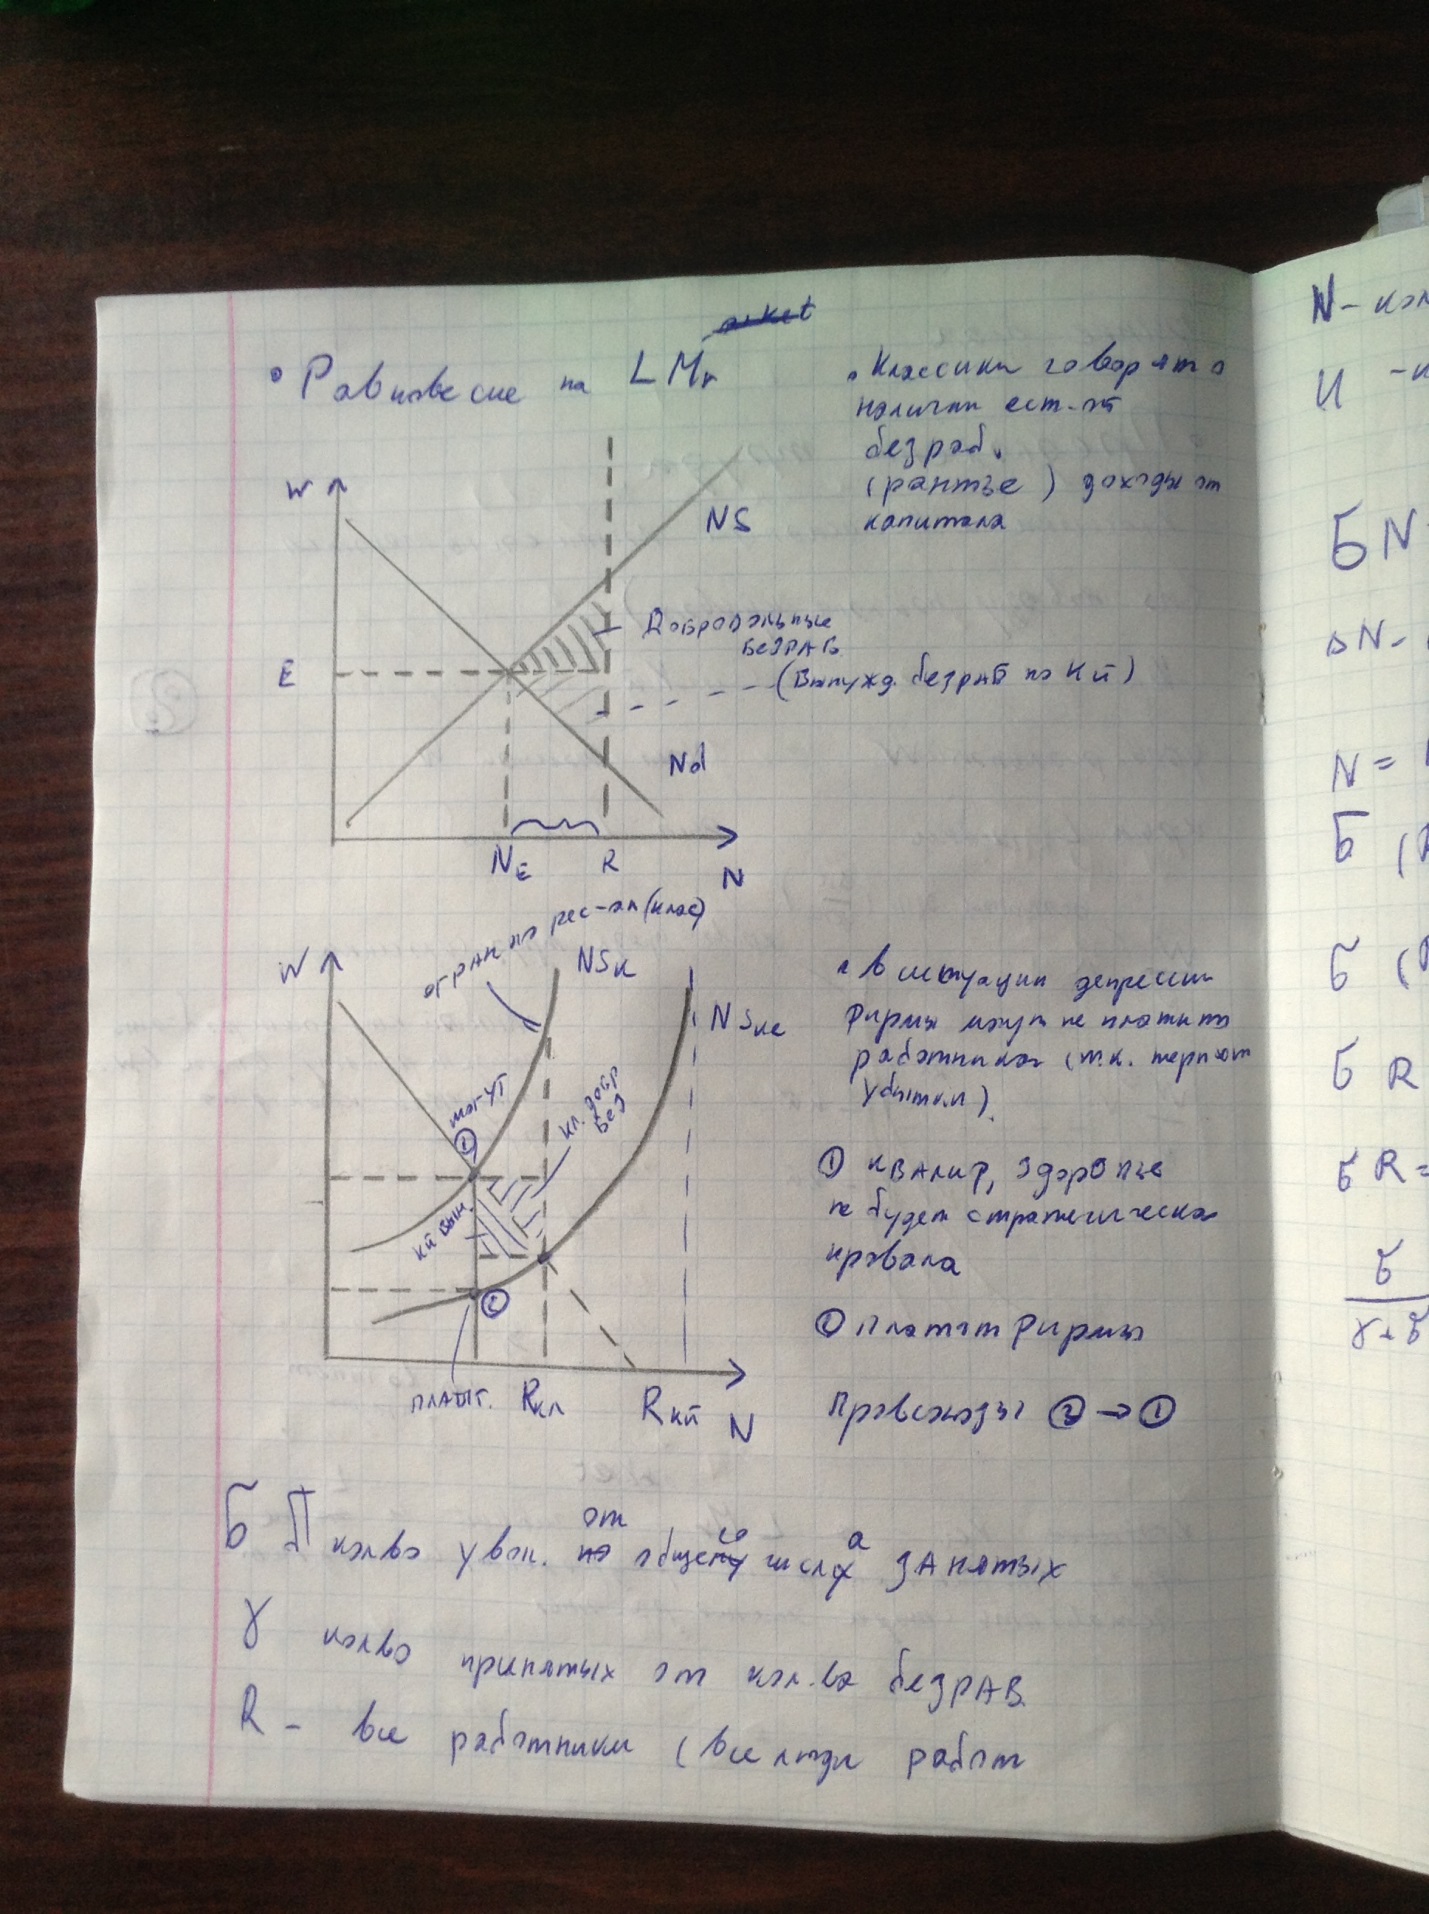 • Равновесие на LMr
• Классики говорят о
наличии ест-ой
безраб.
(рантье) доходы от
капитала
W
NS
Добровольные
безраб.
E
(Вынужд. безраб по Кй)
Nd
NE
R
N
огран по рес-ам (клас)
W
NSк
NSке
могут
①
кл. добр
без
Кй вын.
②
платят.
Rкл
Rкй
N
• В ситуации депрессии
фирмы могут не платить
работникам (т.к. терпят
убытки).
① квалиф, здоровье
не будет стратегическа
провала
② Платят фирмы
Профсоюзы ② → ①
Б
колво увол. от общего числа занятых
γ колво принятых от кол.ва безраб.
R – все работники (все люди работ
N – кол
И
БN
ΔN –
N =
Б
Б
Б R
Б R =
Б
γ+Б